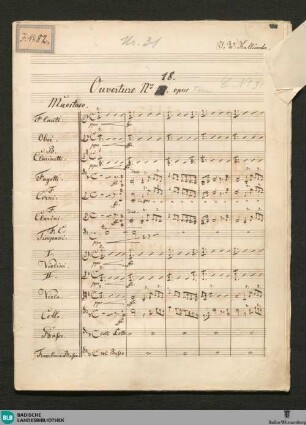 Nr. 31
J. W. Kalliwoda
18.
Ouverture No opus
Maestoso.
Flauti
Oboi
B.
Clarinetti
Fagotti
F.
Corni
F.
Clarini
F. C.
Timpani
I
Violini
II
Viola
Cello
col Cello
Basso
Trombone Basso
col Basso
BLB
BADISCHE
LANDESBIBLIOTHEK
Baden-Württemberg